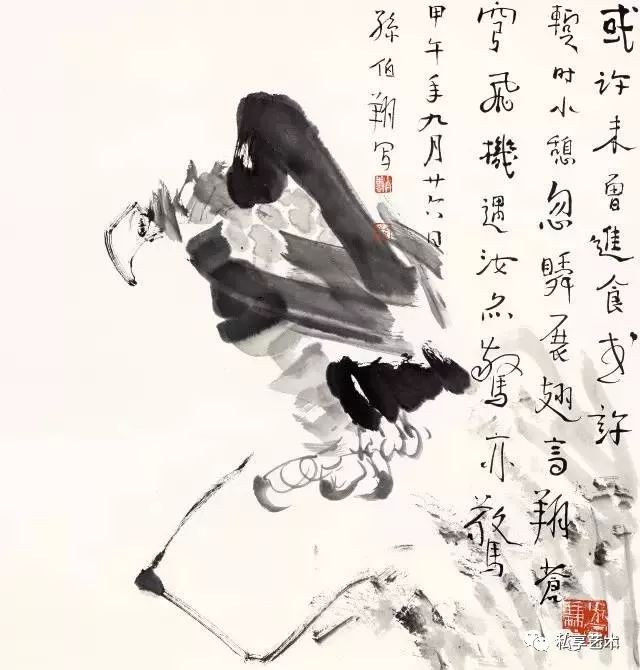 或许未曾進食或許
暫时小憩忽瞬展翅高翔蒼
穹飛機遇汝亦驚亦驚
甲午年九月廿六日
孫伯翔写
私享艺术